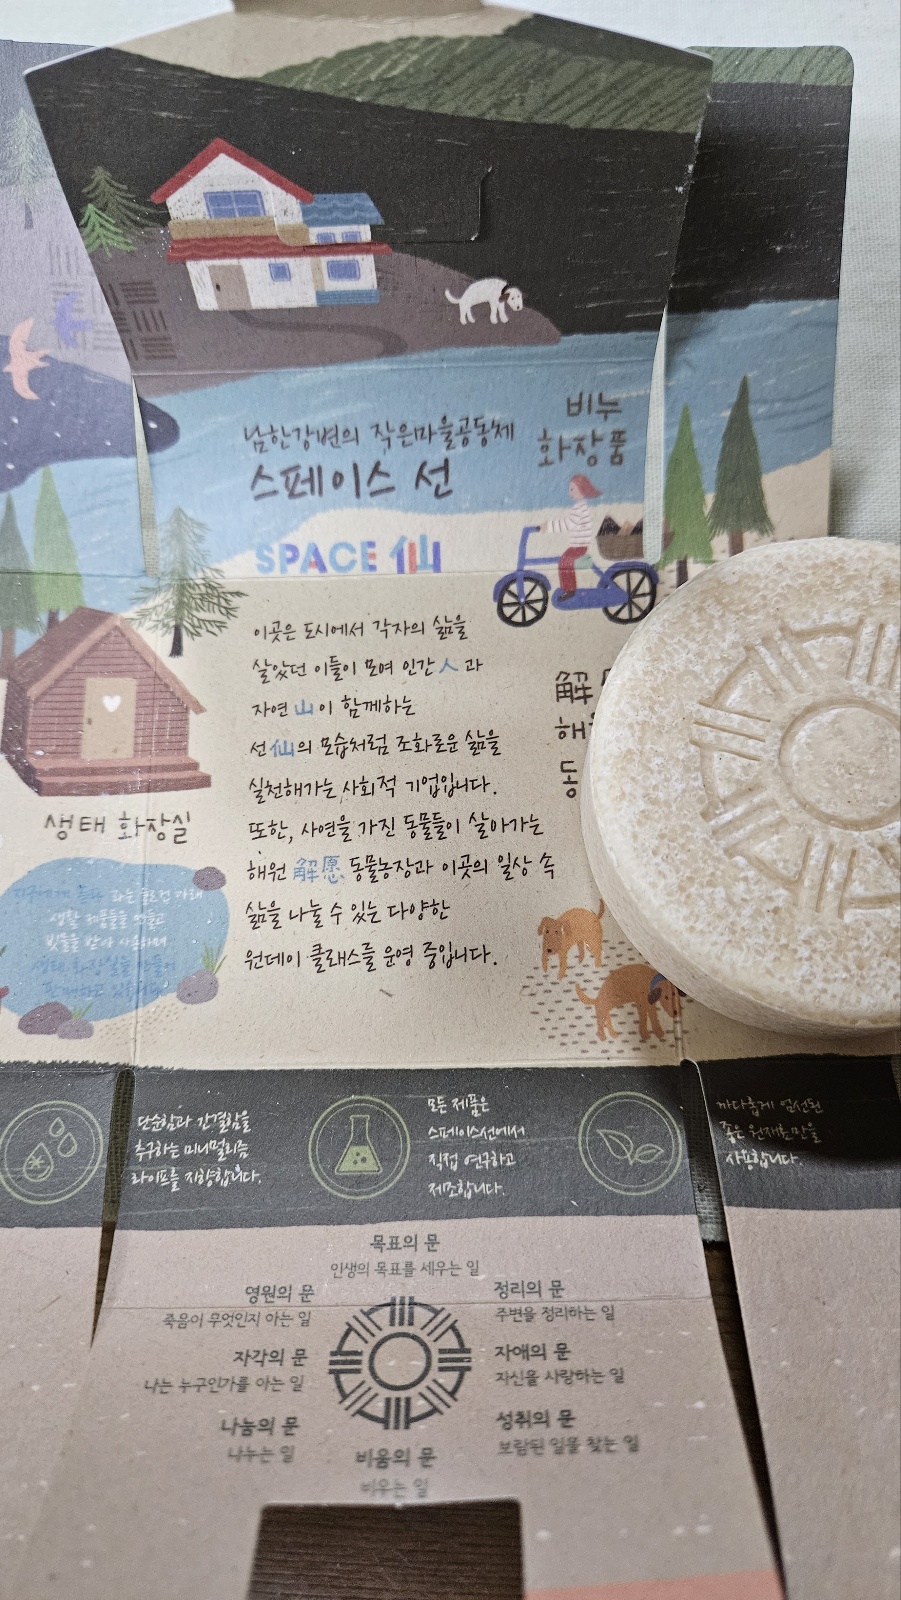 남한강변의 작은마을공동체
스페이스 선
비누
화장품
SPACE 仙
이곳은 도시에서 각자의 삶을
살았던 이들이 모여 인간人과
자연山이 함께하는
선仙의 모습처럼 조화로운 삶을
실천해가는 사회적 기업입니다.
또한, 사연을 가진 동물들이 살아가는
해원 解愿 동물농장과 이곳의 일상 속
삶을 나눌 수 있는 다양한
원데이 클래스를 운영 중입니다.
解
해
동
생태 화장실
단순함과 간결함을
추구하는 미니멀리즘
라이프를 지향합니다.
모든 제품은
스페이스선에서
직접 연구하고
제조합니다.
까다롭게 엄선된
좋은 원재료만을
사용합니다.
목표의 문
인생의 목표를 세우는 일
영원의 문
죽음이 무엇인지 아는 일
정리의 문
주변을 정리하는 일
자각의 문
나는 누구인가를 아는 일
자애의 문
자신을 사랑하는 일
나눔의 문
나누는 일
성취의 문
보람된 일을 찾는 일
비움의 문
비우는 일